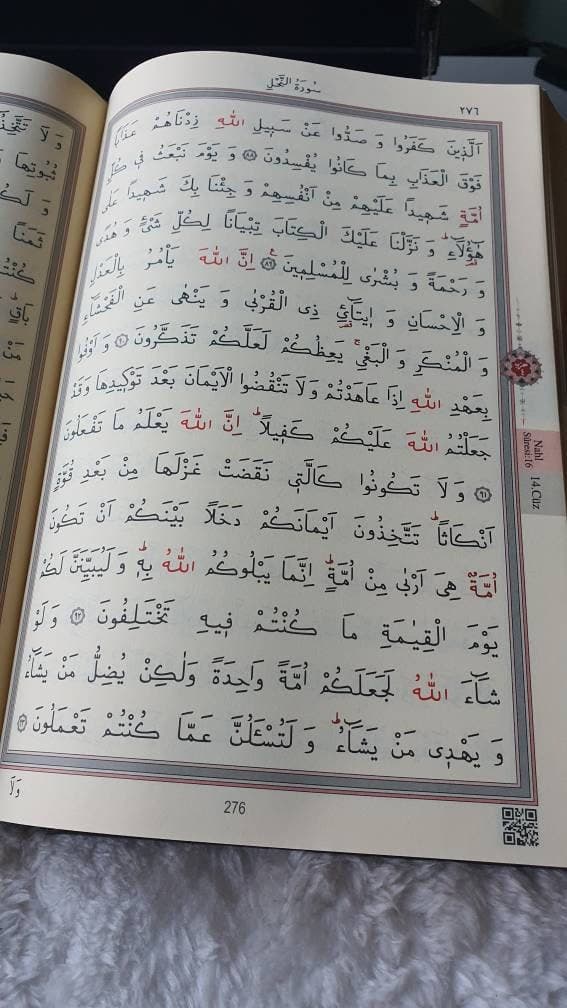 سُورَةُ النَّحْلِ
٢٧٦
اَلَّذِينَ كَفَرُوا وَ صَدُّوا عَنْ سَبِيلِ اللّٰهِ زِدْنَاهُمْ عَذَابًا
فَوْقَ الْعَذَابِ بِمَا كَانُوا يُفْسِدُونَ ﴿٨٨﴾ وَ يَوْمَ نَبْعَثُ فِي كُلِّ
اُمَّةٍ شَهِيدًا عَلَيْهِمْ مِنْ اَنْفُسِهِمْ وَ جِئْنَا بِكَ شَهِيدًا عَلٰى
هٰٓؤُلَٓاءِۜ وَ نَزَّلْنَا عَلَيْكَ الْكِتَابَ تِبْيَانًا لِكُلِّ شَيْءٍ وَ هُدًى
وَ رَحْمَةً وَ بُشْرٰى لِلْمُسْلِمِينَ ﴿٨٩﴾ اِنَّ اللّٰهَ يَأْمُرُ بِالْعَدْلِ
وَ الْاِحْسَانِ وَ اِيتَٓائِ ذِي الْقُرْبٰى وَ يَنْهٰى عَنِ الْفَحْشَٓاءِ
وَ الْمُنْكَرِ وَ الْبَغْيِۚ يَعِظُكُمْ لَعَلَّكُمْ تَذَكَّرُونَ ﴿٩٠﴾ وَ اَوْفُوا
بِعَهْدِ اللّٰهِ اِذَا عَاهَدْتُمْ وَ لَا تَنْقُضُوا الْاَيْمَانَ بَعْدَ تَوْكِيدِهَا وَ قَدْ
جَعَلْتُمُ اللّٰهَ عَلَيْكُمْ كَفِيلًاۜ اِنَّ اللّٰهَ يَعْلَمُ مَا تَفْعَلُونَ
﴿٩١﴾ وَ لَا تَكُونُوا كَالَّتِي نَقَضَتْ غَزْلَهَا مِنْ بَعْدِ قُوَّةٍ
اَنْكَاثًاۜ تَتَّخِذُونَ اَيْمَانَكُمْ دَخَلًا بَيْنَكُمْ اَنْ تَكُونَ
اُمَّةٌ هِيَ اَرْبٰى مِنْ اُمَّةٍۜ اِنَّمَا يَبْلُوكُمُ اللّٰهُ بِهِۜ وَ لَيُبَيِّنَنَّ لَكُمْ
يَوْمَ الْقِيٰمَةِ مَا كُنْتُمْ فِيهِ تَخْتَلِفُونَ ﴿٩٢﴾ وَ لَوْ
شَٓاءَ اللّٰهُ لَجَعَلَكُمْ اُمَّةً وَاحِدَةً وَلٰكِنْ يُضِلُّ مَنْ يَشَٓاءُ
وَ يَهْدِي مَنْ يَشَٓاءُۜ وَ لَتُسْـَٔلُنَّ عَمَّا كُنْتُمْ تَعْمَلُونَ ﴿٩٣﴾
276
Nahl
Sûresi:16
14.Cüz
وَلَا